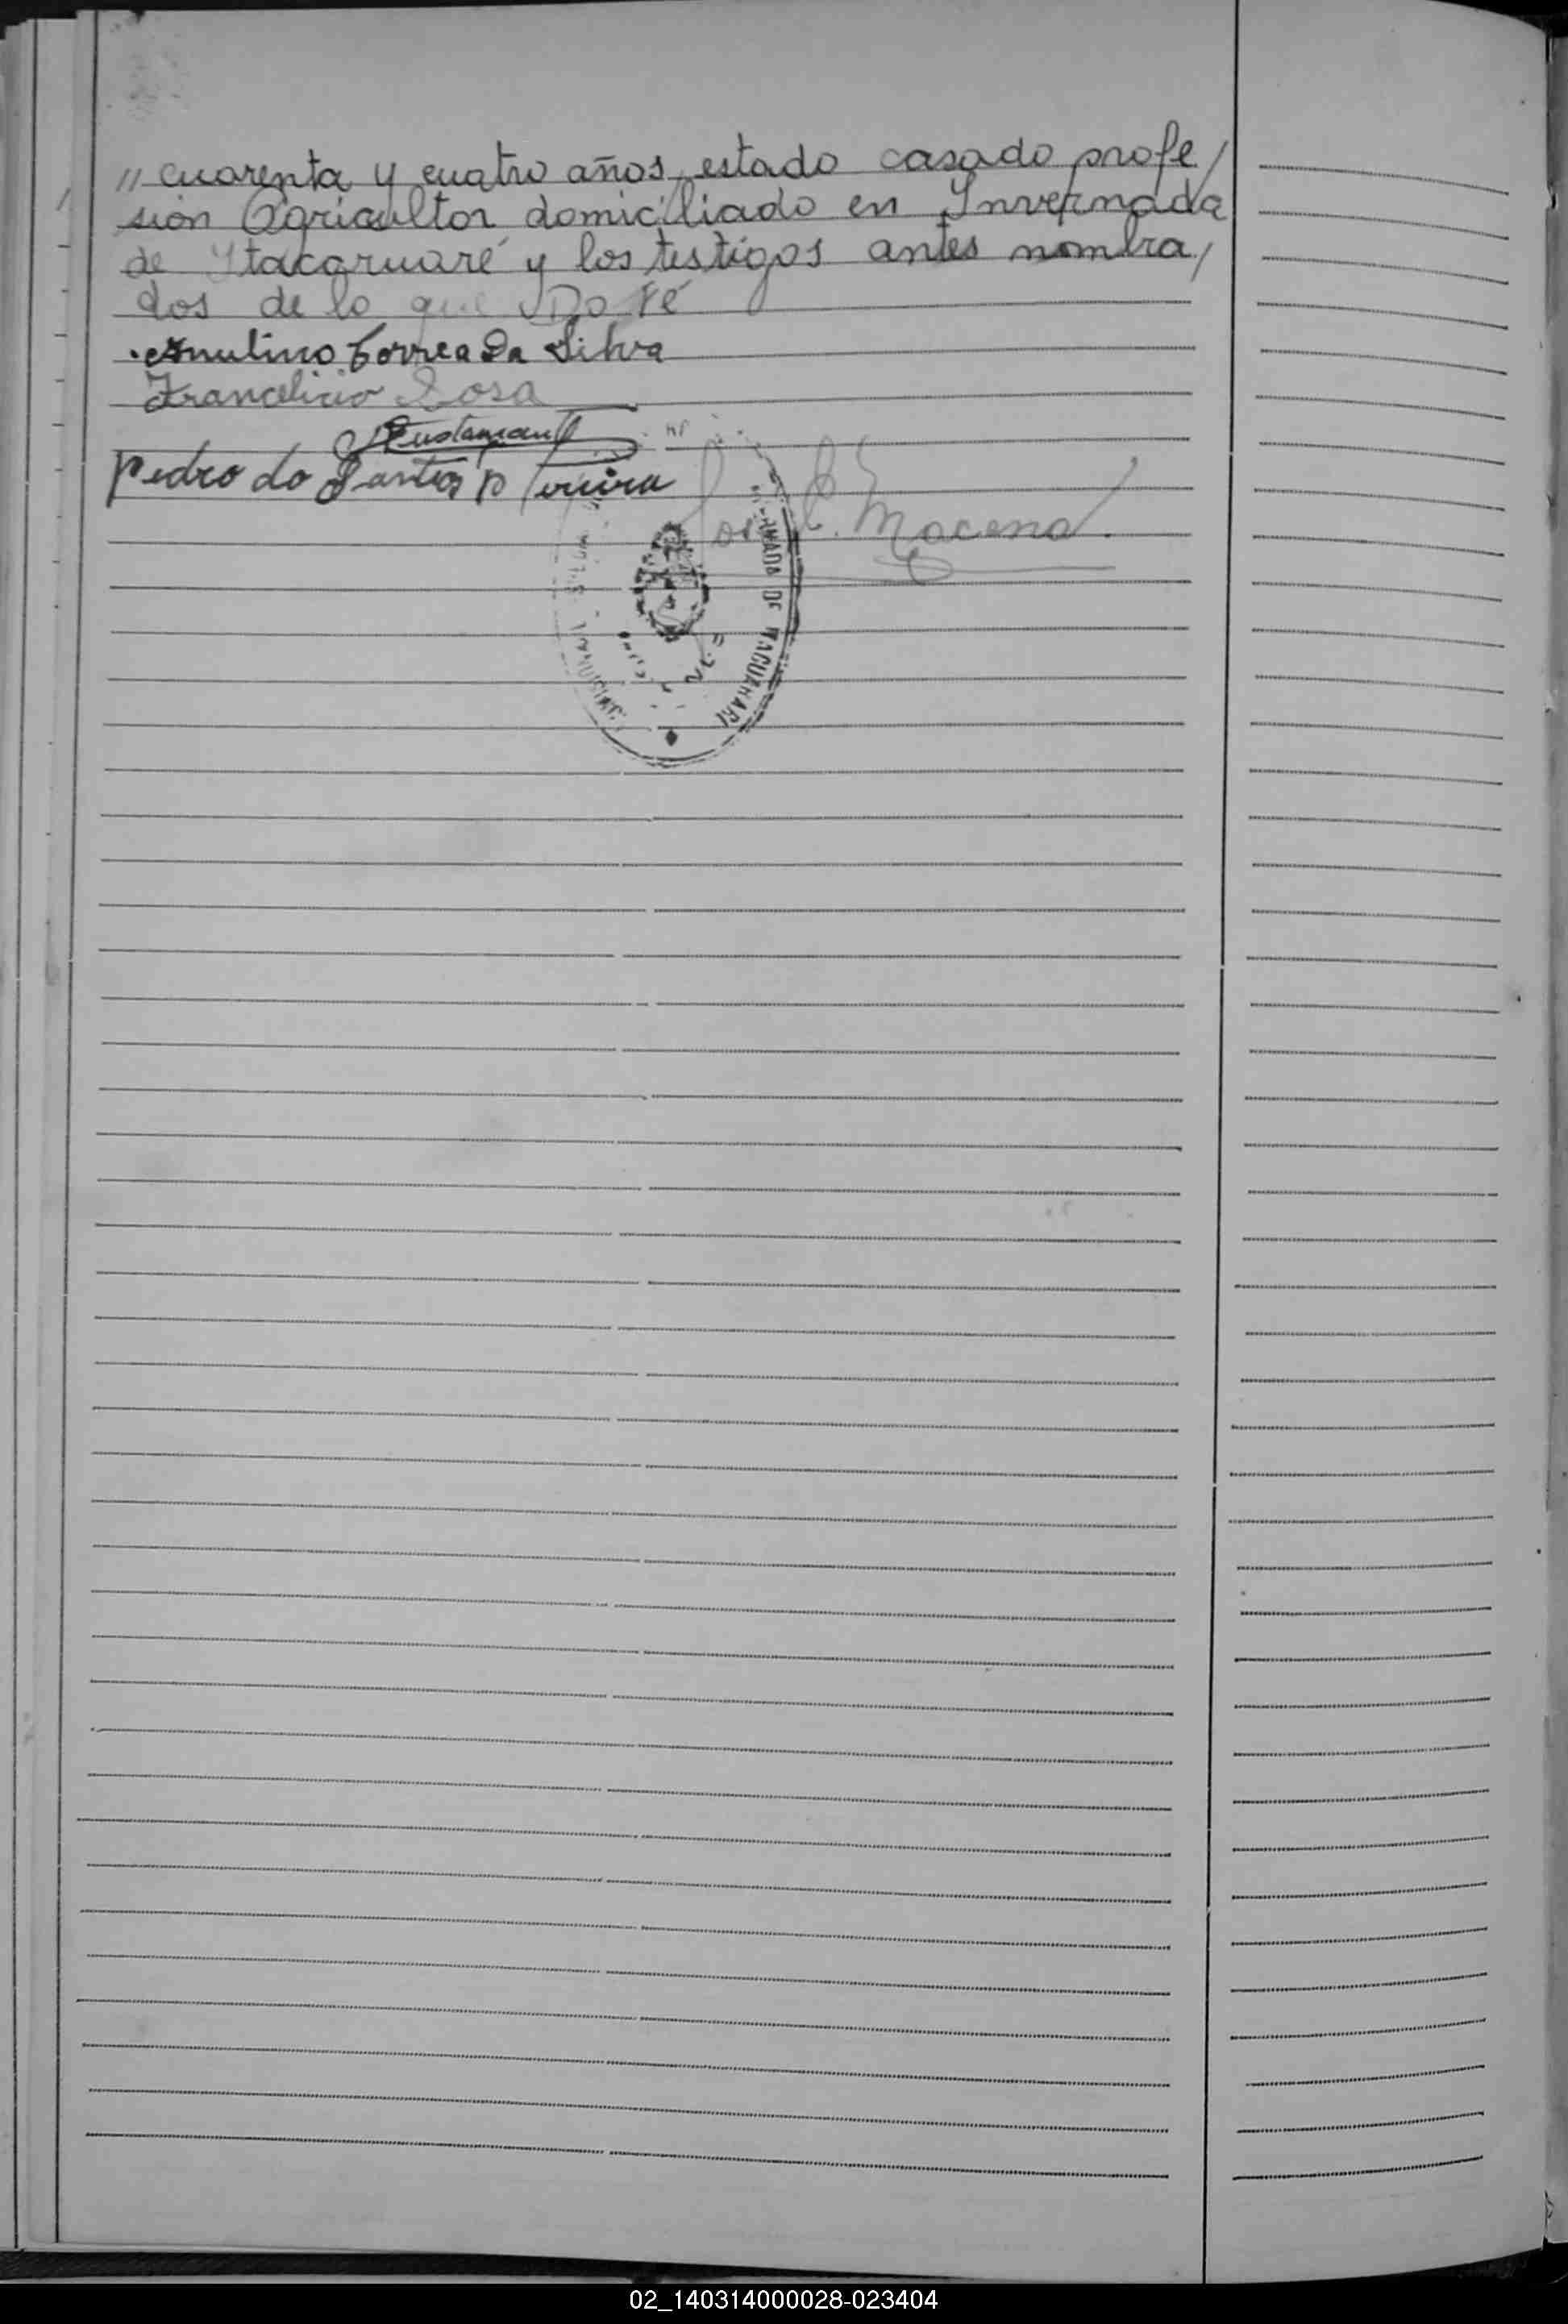 // cuarenta y cuatro años, estado casado profe/
sion Agricultor domiciliado en Invernada
de Ytacaruaré y los testigos antes nombra/
dos de lo que Doy Fé
Correa Da Silva
Francelicio Sosa
Pedro do Santos Pereira
José Macena.
02_140314000028-023404